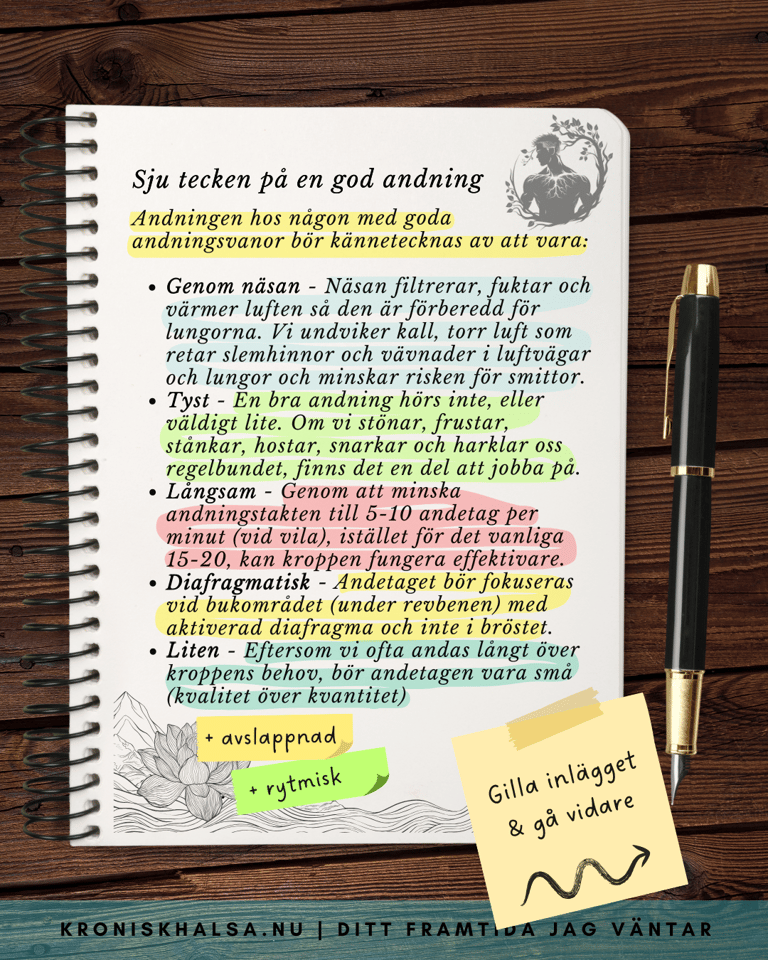 Sju tecken på en god andning
Andningen hos någon med goda
andningsvanor bör kännetecknas av att vara:
• Genom näsan - Näsan filtrerar, fuktar och
värmer luften så den är förberedd för
lungorna. Vi undviker kall, torr luft som
retar slemhinnor och vävnader i luftvägar
och lungor och minskar risken för smittor.
• Tyst - En bra andning hörs inte, eller
väldigt lite. Om vi stönar, frustar,
stånkar, hostar, snarkar och harklar oss
regelbundet, finns det en del att jobba på.
• Långsam - Genom att minska
andningstakten till 5-10 andetag per
minut (vid vila), istället för det vanliga
15-20, kan kroppen fungera effektivare.
• Diafragmatisk - Andetaget bör fokuseras
vid bukområdet (under revbenen) med
aktiverad diafragma och inte i bröstet.
• Liten - Eftersom vi ofta andas långt över
kroppens behov, bör andetagen vara små
(kvalitet över kvantitet)
+ avslappnad
+ rytmisk
Gilla inlägget
& gå vidare
KRONISKHALSA.NU | DITT FRAMTIDA JAG VÄNTAR